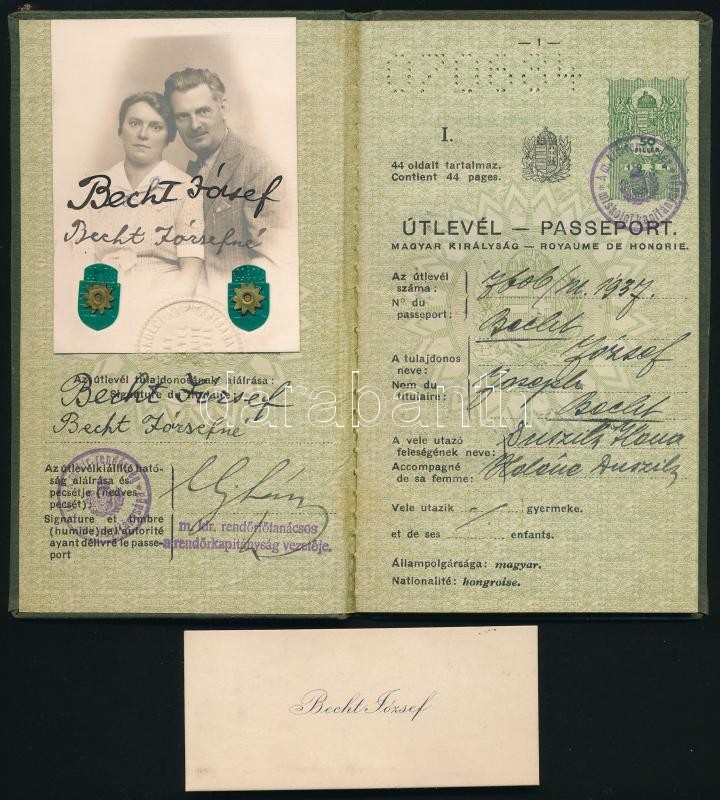 Becht József
Becht Józsefné
Az útlevél tulajdonosának aláírása :
Signature du titulaire :
Becht József
Becht Józsefné
Az útlevélkiállító ható-
ság aláírása és
pecsétje (nedves
pecsét):
Signature et timbre
(humide) de l'autorité
ayant délivré le passe-
port
m. kir. rendőrfőtanácsos
a rendőrkapitányság vezetője.
— 1 —
I.
44 oldalt tartalmaz.
Contient 44 pages.
50
FILLÉR
1934
ÚTLEVÉL — PASSEPORT.
MAGYAR KIRÁLYSÁG — ROYAUME DE HONGRIE.
Az útlevél
száma :
N° du
passeport :
7606/III. 1937.
A tulajdonos
neve :
Nom du
titulaire :
Becht
József
Joseph
Becht
A vele utazó
feleségének neve :
Accompagné
de sa femme :
Duszilz Ilona
Duszilz
Vele utazik gyermeke.
et de ses enfants.
Állampolgársága: magyar.
Nationalité: hongroise.
darabanth
Becht József